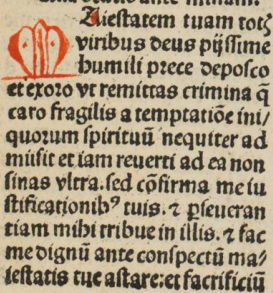 Maiestatem tuam totꝭ
viribus deus pijssime
humili prece deposco
et exoro vt remittas crimina q̃
caro fragilis a temptatiõe ini/
quorum spirituũ nequiter ad
misit et iam reuerti ad ea non
sinas vltra. sed cõfirma me iu
stificationibꝰ tuis. ⁊ pseueran
tiam mihi tribue in illis. ⁊ fac
me dignũ ante conspectũ ma/
iestatis tue astare: et sacrificiũ